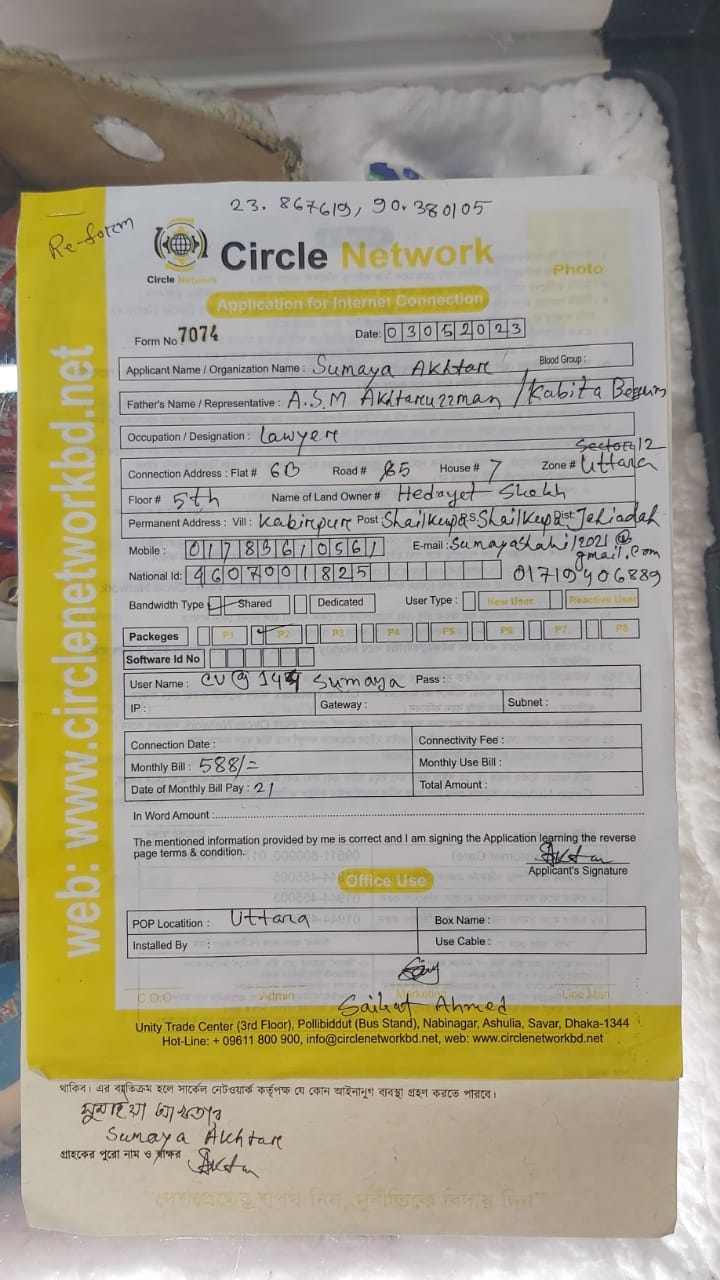 23.867619, 90.380105
Re-form
Circle Network
Circle Network
Photo
Application for Internet Connection
Form No 7074
Date: 03052023
Applicant Name / Organization Name : Sumaya Akhtar
Blood Group :
Father's Name / Representative : A.S.M Akhtaruzzman / Kabita Begum
Occupation / Designation : Lawyer
Sector, 12
Connection Address : Flat # 6B Road # 5 House # 7 Zone # Uttara
Floor # 5th Name of Land Owner # Hedayet
Permanent Address : Vill : Kabirpur Post : PS: Dist:
Mobile : E-mail :
National Id: 4607001825
Bandwidth Type Shared Dedicated User Type : New User Reactive User
Packeges P1 P2 P3 P4 P5 P6 P7 P8
Software Id No
User Name : Sumaya Pass :
IP : Gateway : Subnet :
Connection Date : Connectivity Fee :
Monthly Bill : 588/= Monthly Use Bill :
Date of Monthly Bill Pay : 21 Total Amount :
In Word Amount :
The mentioned information provided by me is correct and I am signing the Application learning the reverse
page terms & condition.
Applicant's Signature
Office Use
POP Locatition : Uttara Box Name :
Installed By : Use Cable :
C.D.O Admin Marketing Line Man
Ahmed
Unity Trade Center (3rd Floor), Pollibiddut (Bus Stand), Nabinagar, Ashulia, Savar, Dhaka-1344
Hot-Line: + 09611 800 900, info@circlenetworkbd.net, web: www.circlenetworkbd.net
web: www.circlenetworkbd.net
থাকিব। এর ব্যতিক্রম হলে সার্কেল নেটওয়ার্ক কর্তৃপক্ষ যে কোন আইনানুগ ব্যবস্থা গ্রহণ করতে পারবে।
সুমাইয়া আখতার
Sumaya Akhtar
গ্রাহকের পুরো নাম ও স্বাক্ষর
"দেশপ্রেমের শপথ নিন, দুর্নীতিকে বিদায় দিন"